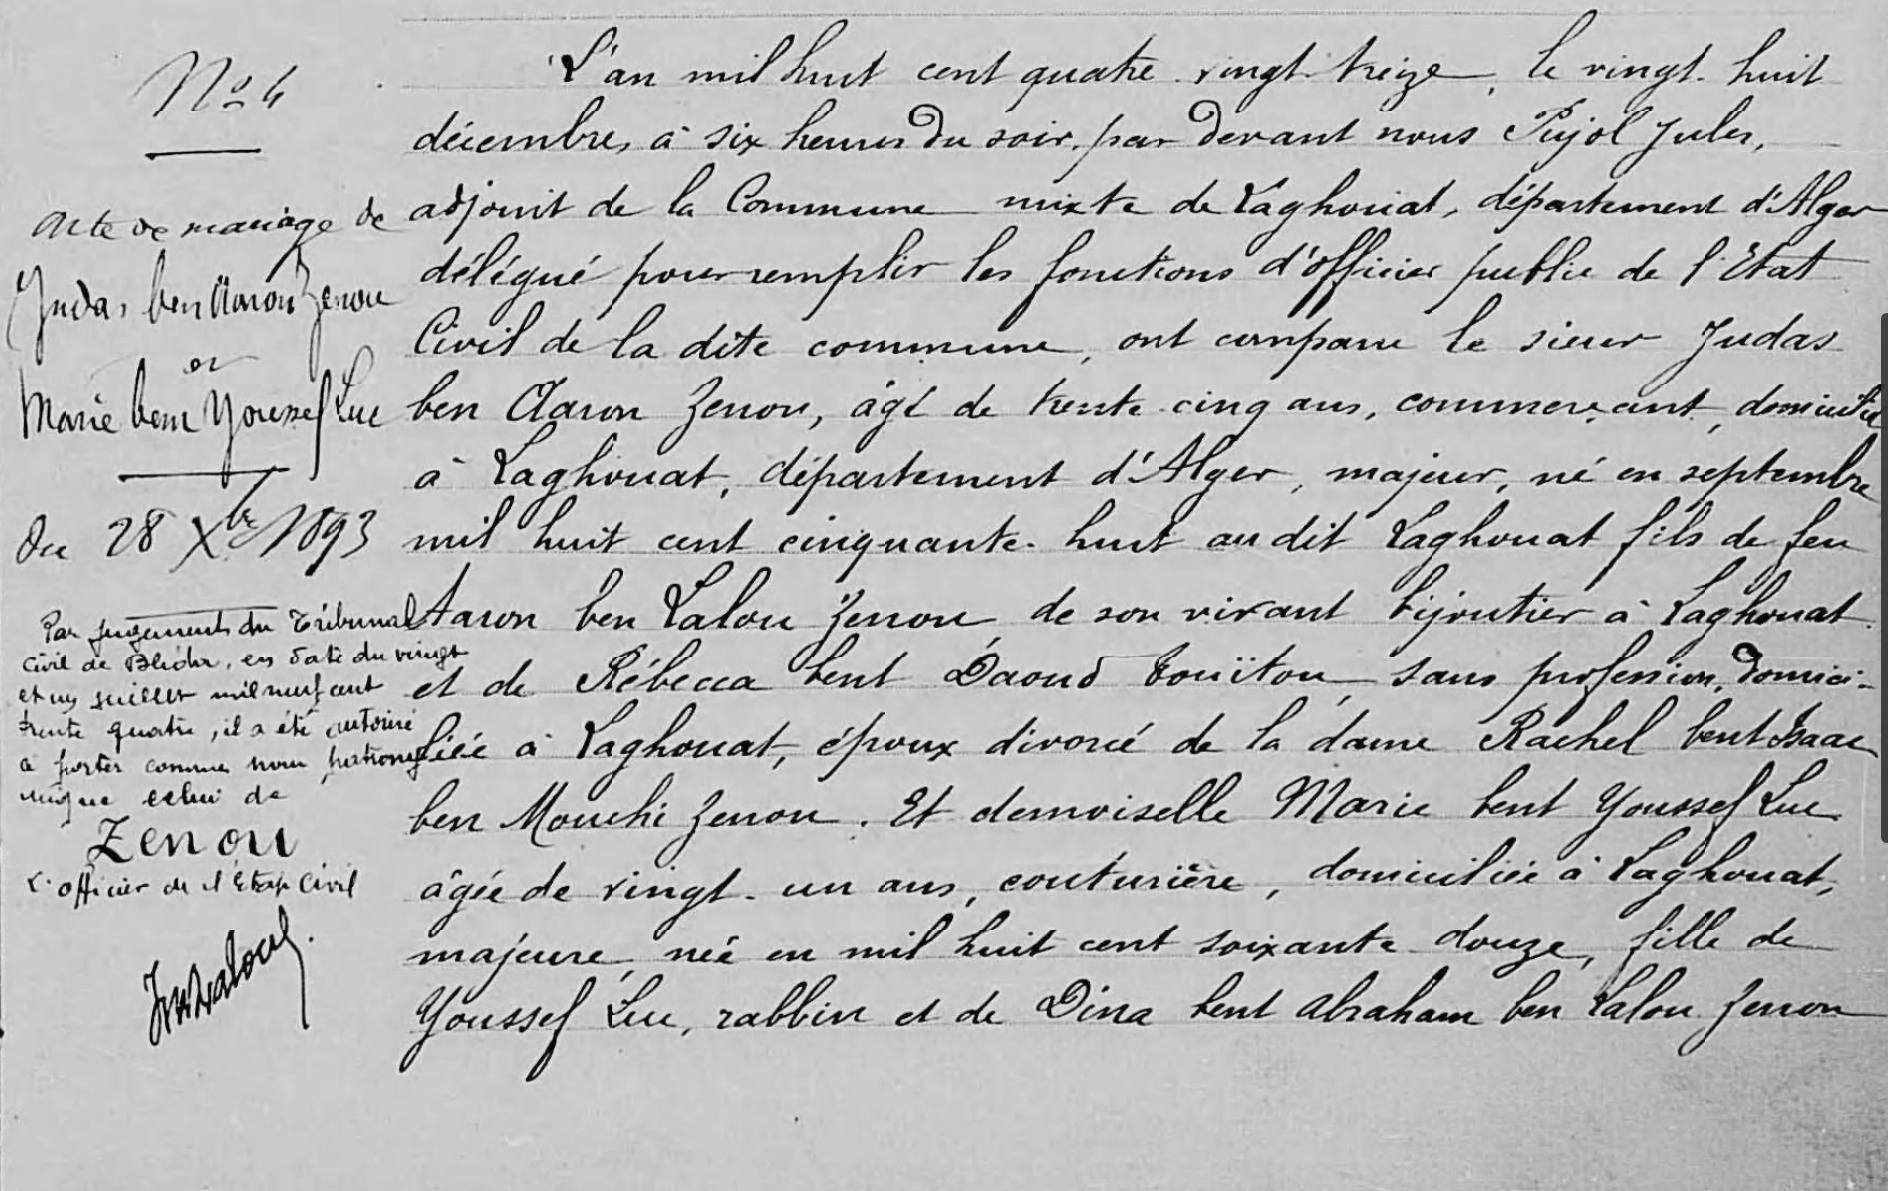 N° 4
Acte de mariage de
Judas ben Aaron Zenou
et
Marie bent Youssef Luc
du 28 Xbre 1893
Par jugement du Tribunal
Civil de Blida, en date du vingt
et un juillet mil neuf cent
trente quatre, il a été autorisé
à porter comme nom patronymique
unique celui de
Zenou
L'officier de l'Etat Civil
L'an mil huit cent quatre vingt treize, le vingt huit
décembre, à six heures du soir, par devant nous Pujol Jules,
adjoint de la Commune mixte de Laghouat, département d'Alger
délégué pour remplir les fonctions d'officier public de l'Etat
Civil de la dite commune, ont comparu le sieur Judas
ben Aaron Zenou, âgé de trente cinq ans, commerçant, domicilié
à Laghouat, département d'Alger, majeur, né en septembre
mil huit cent cinquante huit au dit Laghouat fils de feu
Aaron ben Lalou Zenou, de son vivant bijoutier à Laghouat
et de Rébecca bent Daoud Touïtou, sans profession, domici-
liée à Laghouat, époux divorcé de la dame Rachel bent Isaac
ben Mouchi Zenou. Et demoiselle Marie bent Youssef Luc
âgée de vingt-un ans, couturière, domiciliée à Laghouat,
majeure, née en mil huit cent soixante douze, fille de
Youssef Luc, rabbin et de Dina bent Abraham ben Lalou Zenou